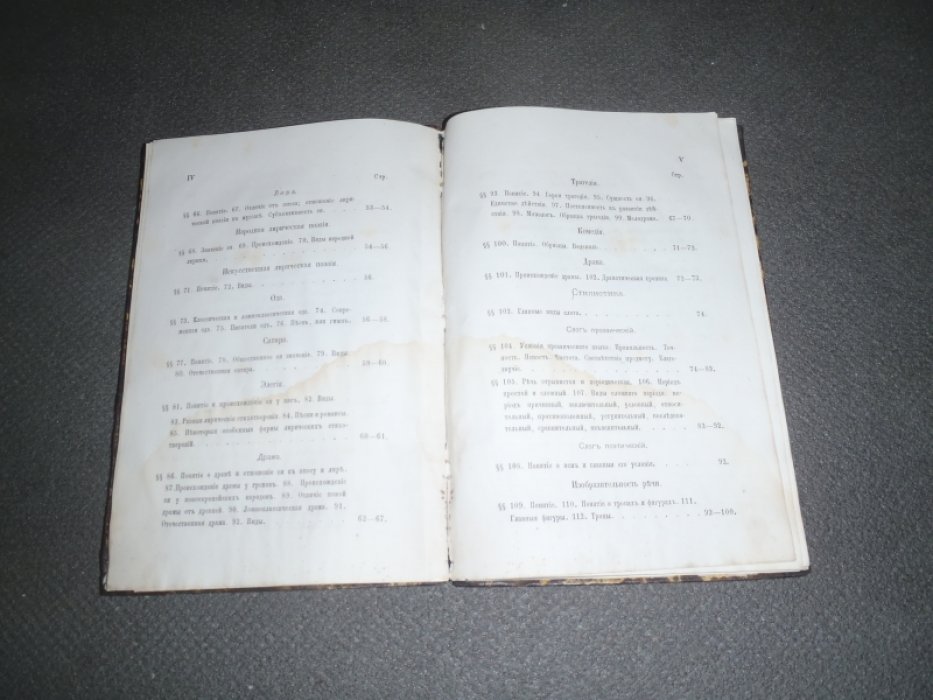 IV
Стр.
§§ 66. Понятіе. 67. Отличіе отъ эпоса; отношеніе лири-
ческой поэзіи къ музыкѣ. Субъективность ея. . . . . 53—54.
Народная лирическая поэзія.
§§ 68. Значеніе ея. 69. Происхожденіе. 70. Виды народной
лирики. . . . . . . . . . 54—56.
Искусственная лирическая поэзія.
§§ 71. Понятіе. 72. Виды. . . . . . . . 56.
Ода.
§§ 73. Классическая и ложноклассическая ода. 74. Совре-
менная ода. 75. Писатели одъ. 76. Пѣснь, или гимнъ. 56—58.
Сатира.
§§ 77. Понятіе. 78. Общественное ея значеніе. 79. Виды
80. Отечественная сатира. . . . . . . . 58—60
Элегія.
§§ 81. Понятіе и происхожденіе ея у насъ. 82. Виды
83. Разныя лирическія стихотворенія 84. Пѣсни и романсы.
85. Нѣкоторыя особенныя формы лирическихъ стихо-
твореній. . . . . . . . . . 60—61.
Драма.
§§ 86. Понятіе о драмѣ и отношеніе ея къ эпосу и лирѣ.
87. Происхожденіе драмы у грековъ. 88. Происхожденіе
ея у новоевропейскихъ народовъ. 89. Отличіе новой
драмы отъ древней. 90. Ложноклассическая драма. 91.
Отечественная драма. 92. Виды. . . . . . 62—67.
V
Стр.
Трагедія.
§§ 93. Понятіе. 94. Герои трагедіи. 95. Сущность ея. 96.
Единство дѣйствія. 97. Постепенность въ развитіи дѣй-
ствія. 98. Монологъ. Образцы трагедіи. 99. Мелодрама. 67—70.
Комедія.
§§ 100. Понятіе. Образцы. Водевиль. . . . . . 71—72.
Драма.
§§ 101. Происхожденіе драмы. 102. Драматическія хроники. 72—73.
Стилистика.
§§ 103. Главные виды слога. . . . . . . 74.
Слогъ прозаическій.
§§ 104. Условія прозаическаго языка. Правильность. Точ-
ность. Ясность. Чистота. Сообразность предмету. Благо-
звучіе. . . . . . . . . . 74—83.
§§ 105. Рѣчь отрывистая и періодическая. 106. Періодъ
простой и сложный. 107. Виды сложныхъ періодовъ: пе-
ріодъ причинный, заключительный, условный, относи-
тельный, противоположный, уступительный, послѣдова-
тельный, сравнительный, изъяснительный. . . . . 83—92.
Слогъ поэтическій.
§§ 108. Понятіе о немъ и главныя его условія. . . . 92.
Изобразительность рѣчи.
§§ 109. Понятіе. 110. Понятіе о тропахъ и фигурахъ. 111.
Главныя фигуры. 112. Тропы. . . . . . . 93—100.